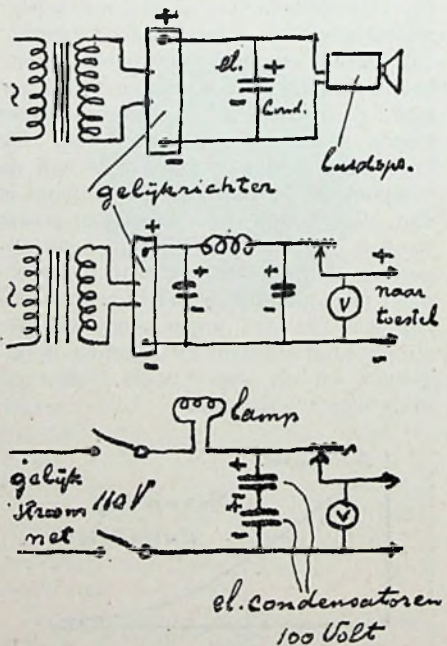 +
el. + -
Cond.
-
luidspr.
gelijkrichter
+
+ - + -
+
naar
toestel
V
-
lamp
gelijk
stroom 110 V
net
+
+
-
-
V
el. condensatoren
100 Volt